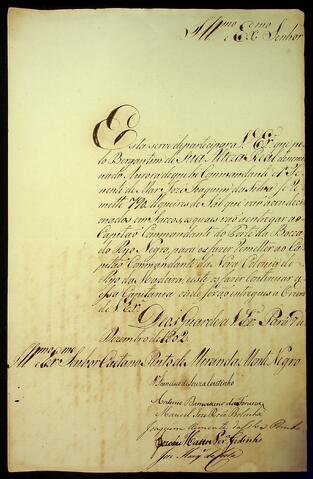 Illmo e Exmo Senhor
Esta serve de participar a V. Exa que pe
lo Bergantim de Sua Alteza Real denomi
nado Aurora de que he Commandante o The
nente de Mar Joze Joaquim da Silva se re
mette 790 Alqueires de Sal que vão acondici
onados em Saccos os quaes vão a entregar ao
Capitão Commandante do Forte da Barra
do Rio Negro, para os fazer remetter ao Ca
pitão Commandante da Nova Colonia do
Rio da Madeira, e este os fazer continuar a
essa Capitania onde serão entregues á Ordem
de V. Exa
Deos Guarde a V. Exa Pará 7 de
Dezembro de 1802
Illmo e Exmo Senhor Caetano Pinto de Miranda Montenegro
Francisco de Souza Coutinho
Manoel Joze
Joaquim Clemente da Silva Pombo
Godinho
Joze